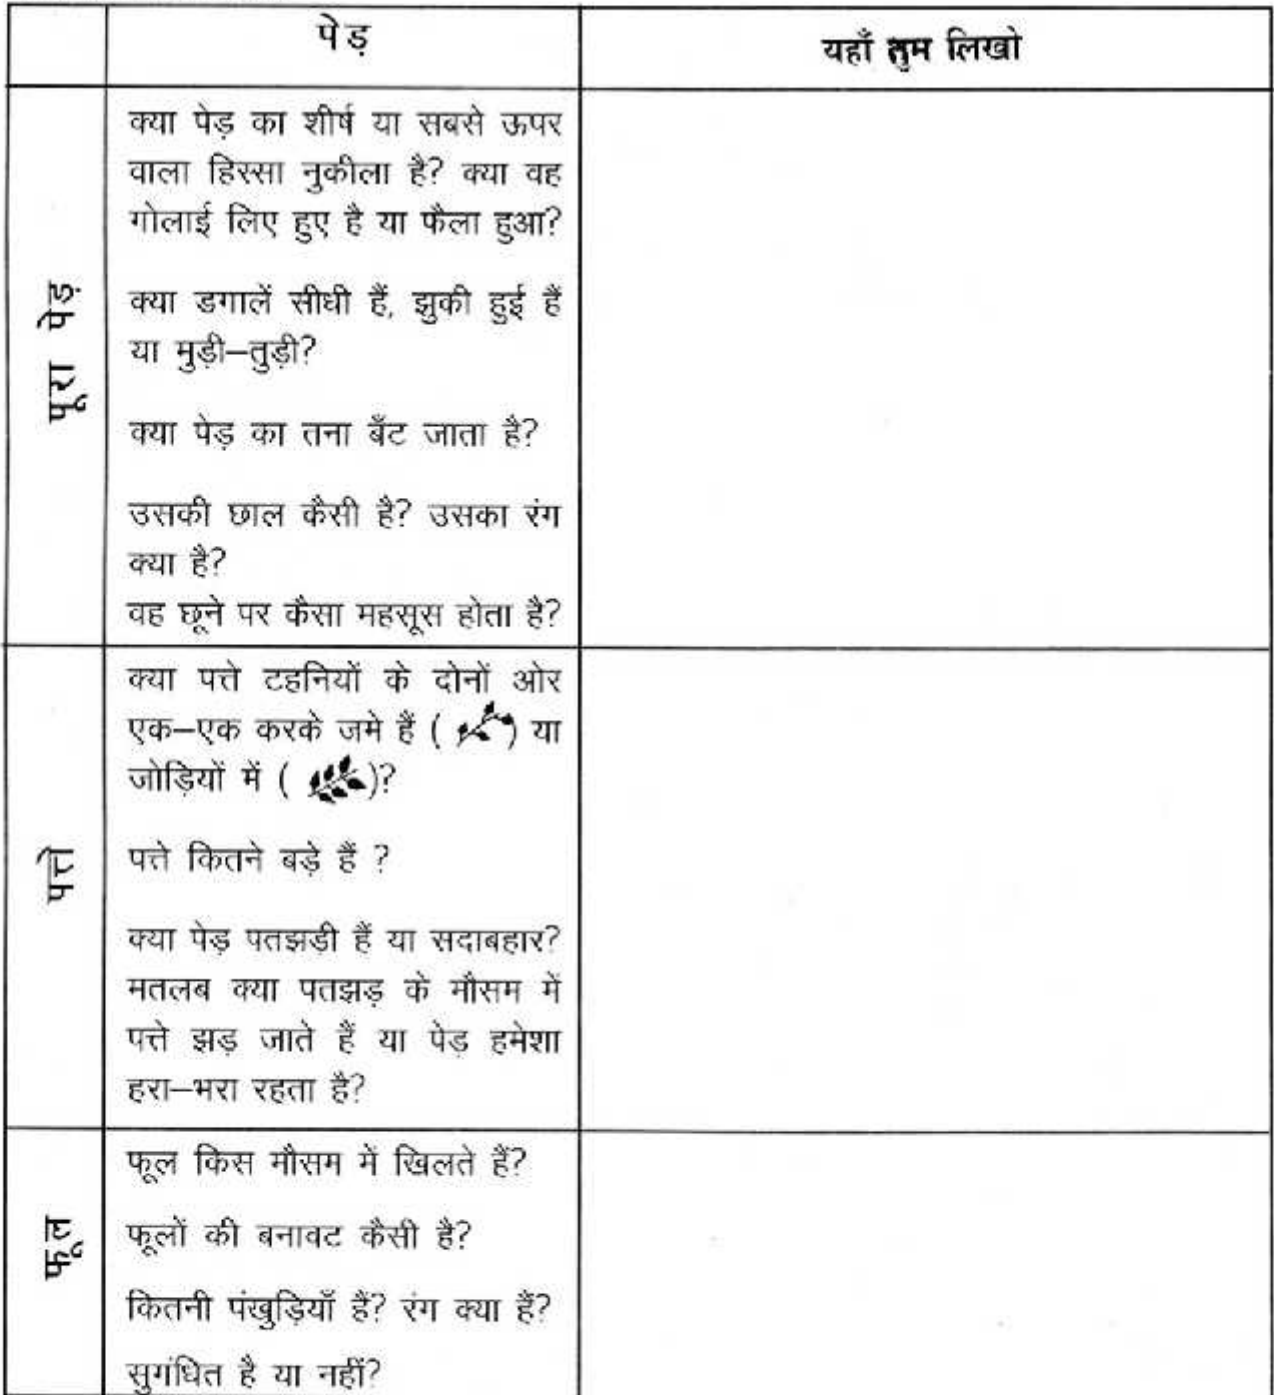 पेड़
यहाँ तुम लिखो
पूरा पेड़
क्या पेड़ का शीर्ष या सबसे ऊपर
वाला हिस्सा नुकीला है? क्या वह
गोलाई लिए हुए है या फैला हुआ?
क्या डगालें सीधी हैं, झुकी हुई हैं
या मुड़ी–तुड़ी?
क्या पेड़ का तना बँट जाता है?
उसकी छाल कैसी है? उसका रंग
क्या है?
वह छूने पर कैसा महसूस होता है?
पत्ते
क्या पत्ते टहनियों के दोनों ओर
एक–एक करके जमे हैं ( ) या
जोड़ियों में ( )?
पत्ते कितने बड़े हैं ?
क्या पेड़ पतझड़ी हैं या सदाबहार?
मतलब क्या पतझड़ के मौसम में
पत्ते झड़ जाते हैं या पेड़ हमेशा
हरा–भरा रहता है?
फूल
फूल किस मौसम में खिलते हैं?
फूलों की बनावट कैसी है?
कितनी पंखुड़ियाँ हैं? रंग क्या हैं?
सुगंधित है या नहीं?